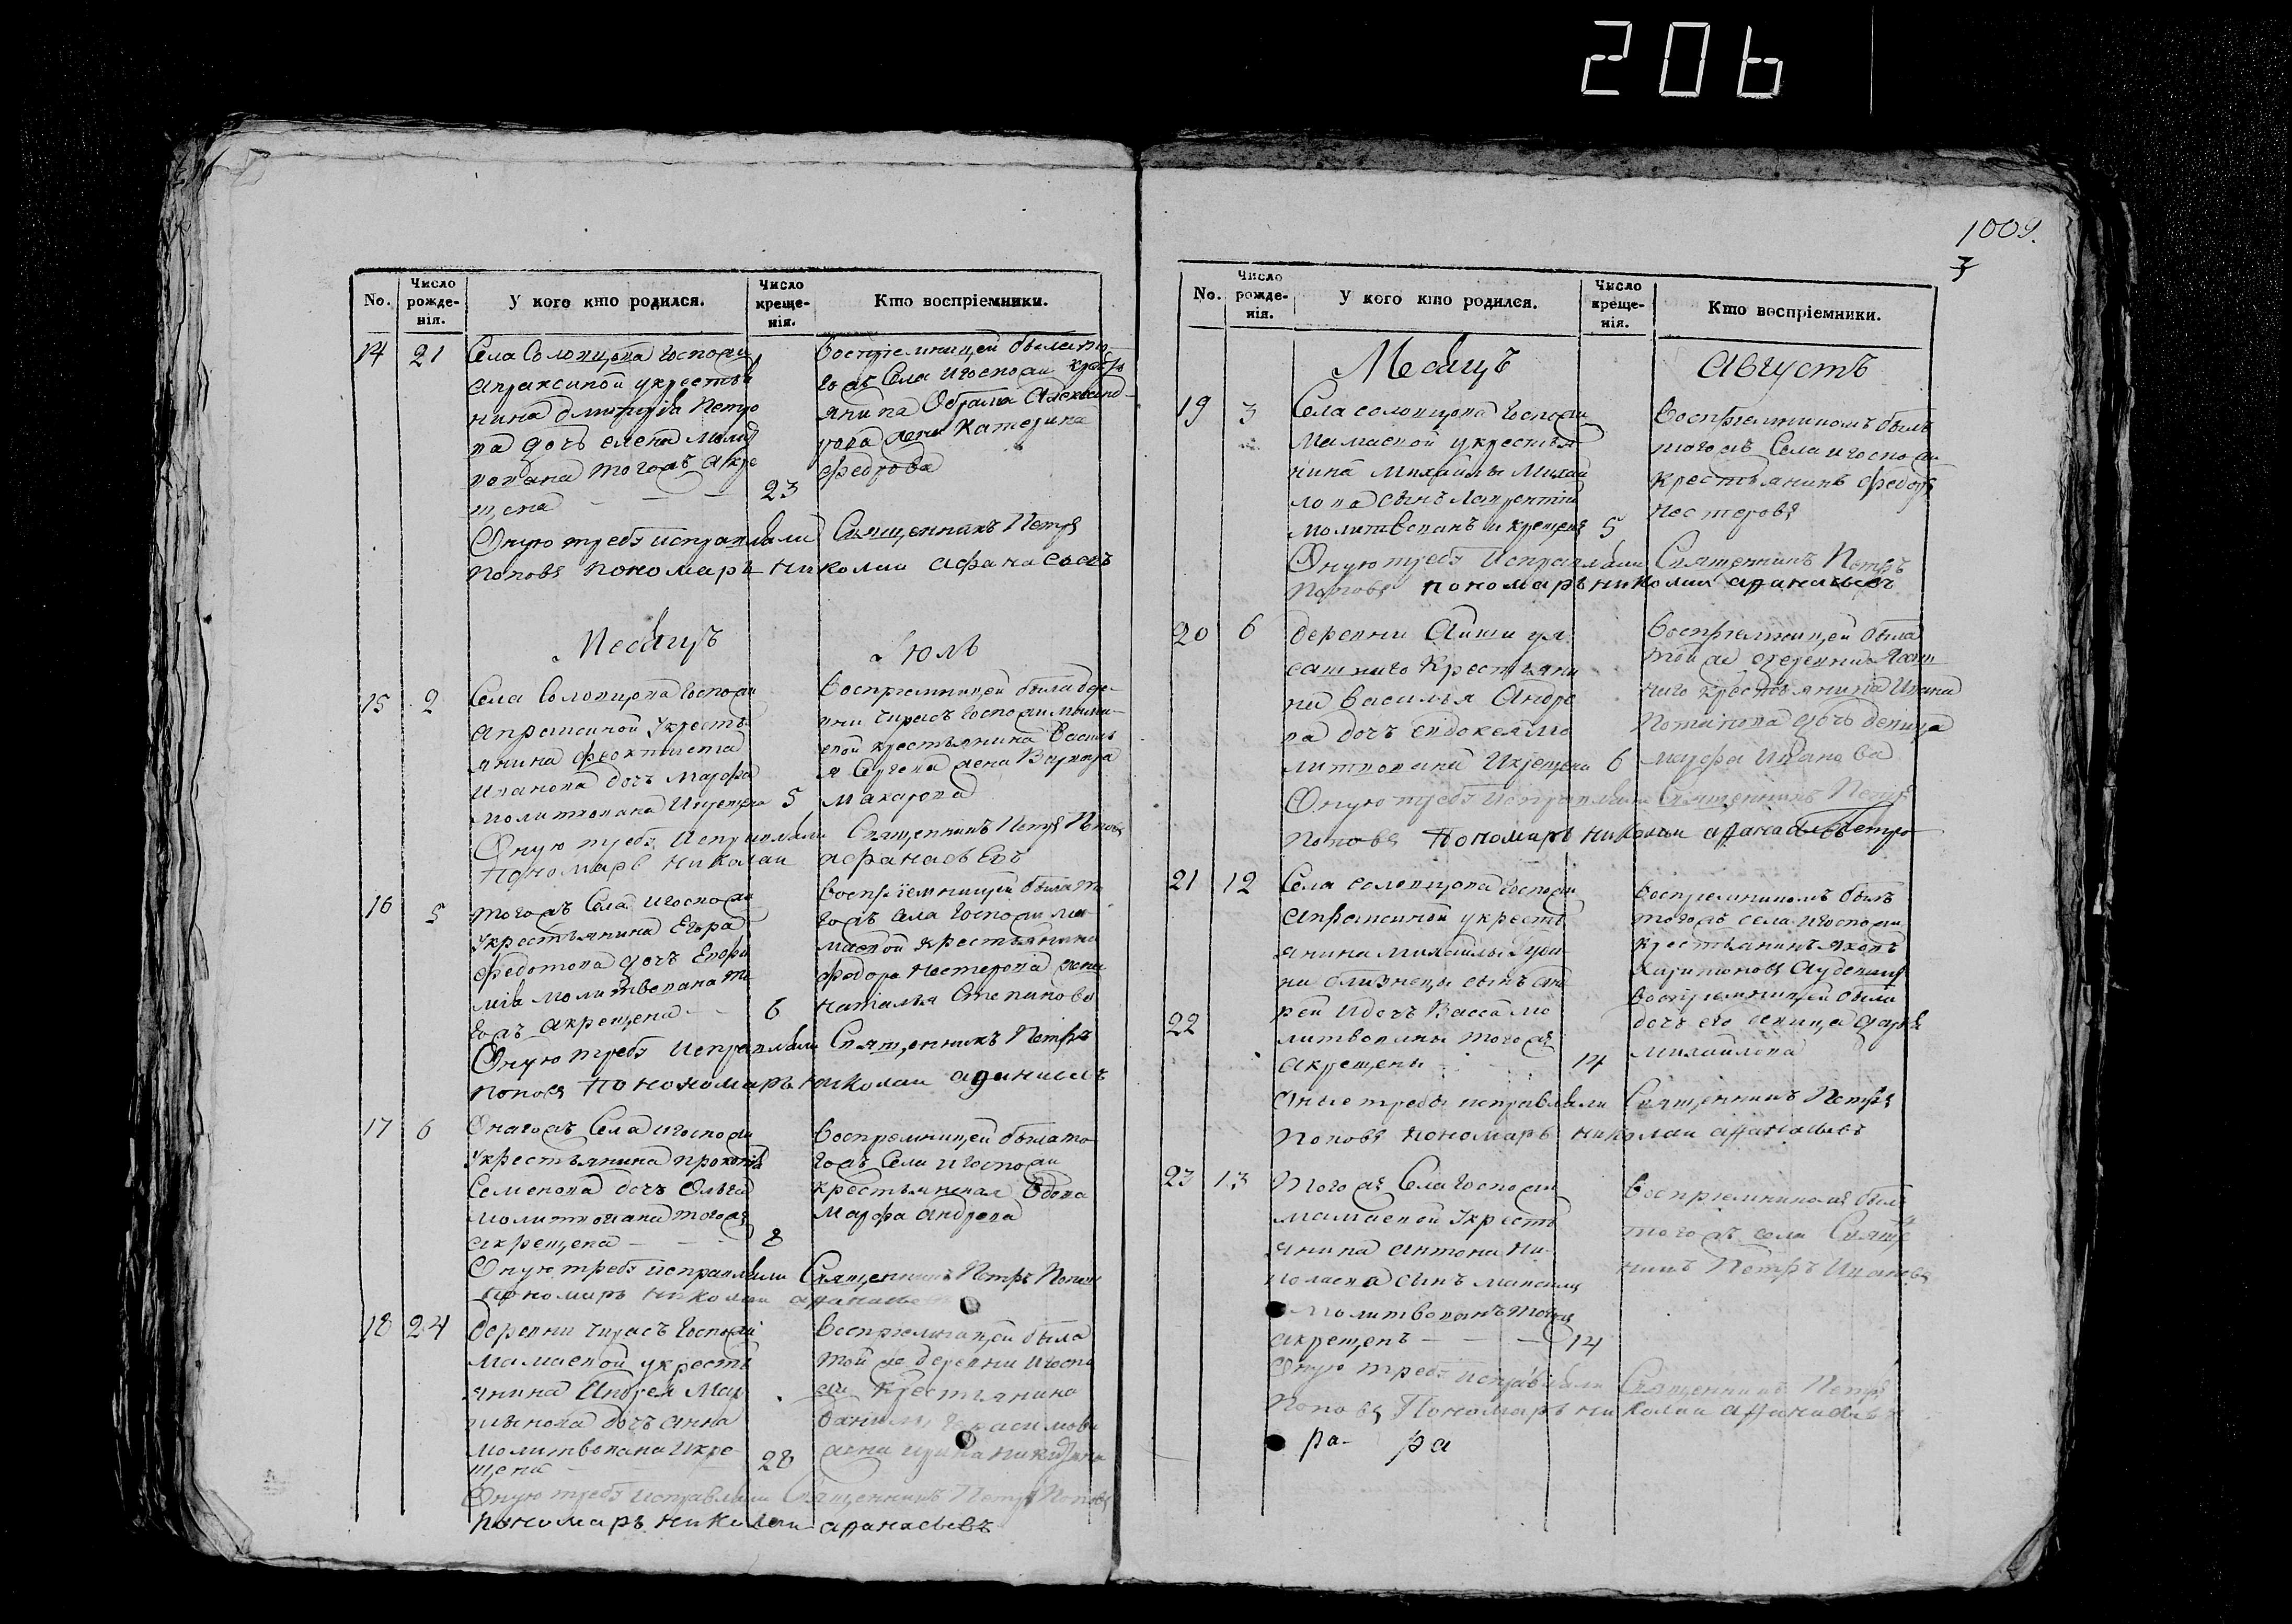 206
1009.
3
No. Число рожде-нія. У кого кто родился. Число креще-нія. Кто воспріемники.
14 21 Села Солопцова Госпожи
апраксиной укрестья
нина дмитрія Петро
ва дочь елена молит
вована тогожъ акре
щена 23
воспріемницей была то
гожъ Села игоспожи крестья
янина Абрама Александ
рова жена Катерина
федрова
Оную требу исправляли Священникъ Петръ
Поповъ пономарь николаи афанасьевъ
Месяцъ Июль
15 2 Села Солопцова Госпожи
апраксиной укресть
янина феоктиста
Иванова дочь Марфа
молитвована Икрещена 5
воспріемницей была дере
вни чирасъ госпожи мама
евой крестьянина Василь
я Сергеева жена Варвара
Макарова
Оную требу Исправляли Священникъ Петръ Поповъ
Пономарь Николаи афанасьевъ
16 5 тогожъ Села игоспожи
Укрестьянина Егора
федотова дочь Евфи
мія молитвована то
гожъ акрещена 6
воспріемницей была то
гожъ села госпожи ма
маевой крестьянина
федора нестерова жена
наталья Степанова
Оную требу Исправляли Священникъ Петръ
Поповъ Пономарь Николаи
17 6 Оногожъ Села игоспожи
Укрестьянина прокофія
Семенова дочь Ольга
молитвована тогожъ
акрещена 8
воспріемницей была то
гожъ Села игоспожи
крестьянская вдова
Марфа андрева
Оную требу исправляли Священникъ Петръ Поповъ
пономарь николаи афанасьевъ
18 24 деревни чирасъ Госпожи
мамаевой укресть
янина Андрея Мар
тынова дочь анна
молитвована Икре
щена 28
воспріемницей была
той же деревни игоспо
жи крестьянина
данилы Герасимова
жена ирина никитина
Оную требу исправляли Священникъ Петръ Поповъ
пономарь николаи афанасьевъ
No. Число рожде-нія. У кого кто родился. Число креще-нія. Кто воспріемники.
Месяцъ Августъ
19 3 Села солопцова госпожи
мамаевой укрестья
нина Михайлы Михай
лова сынъ лаврентій
молитвованъ и крещенъ 5
воспріемникомъ былъ
тогожъ Села игоспожи
крестьянинъ федоръ
нестеровъ
Оную требу Исправляли Священникъ Петръ
Поповъ пономарь николаи афанасьевъ
20 6 деревни Айши уя
сашнаго Крестьяни
на василья Андре
ва дочь евдокея мо
литвована Икрещена 6
воспріемницей была
той же деревни Ясаш
наго крестьянина Ивана
Потапова дочь девица
марфа Иванова
Оную требу исправляли Священникъ Петръ
Поповъ Пономарь николаи
21 12 Села солопцова госпожи
апраксиной укресть
янина михайлы
на близнецы сынъ анд
22 рей Идочь Васса мо
литвованы тогожъ
акрещены 14
воспріемникомъ былъ
тогожъ села игоспожи
крестьянинъ яковъ
Харитоновъ Аудевицы
воспріемницей была
дочь его девица дарья
михайлова
Оные требы исправляли Священникъ Петръ
Поповъ пономарь николаи афанасьевъ
23 13 Тогожъ Села госпожи
мамаевой Укресть
янина антона ни
колаева сынъ максимъ
молитвованъ тогожъ
акрещенъ 14
воспріемникомъ былъ
тогожъ села Свяще
никъ Петръ Ивановъ
Оную требу исправляли Священникъ Петръ
Поповъ Пономарь николаи афанасьевъ
ра- ра